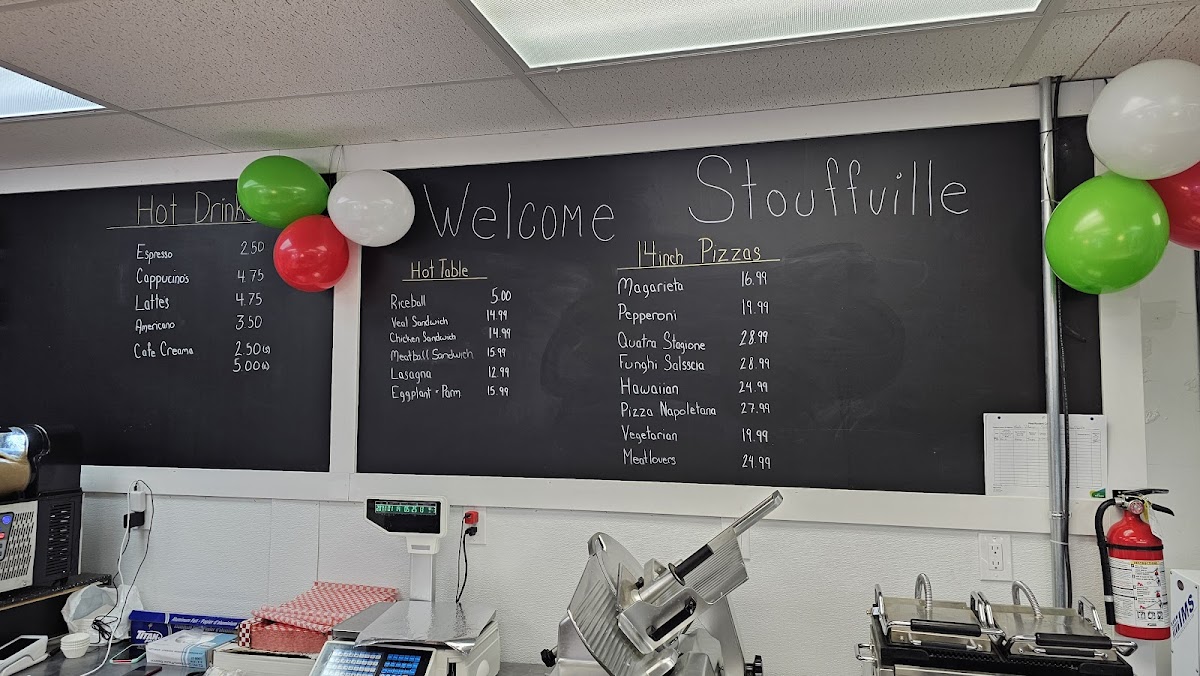 Hot Drinks
Espresso 2.50
Cappucino's 4.75
Lattes 4.75
Americano 3.50
Cafe Creama 2.50(s)
5.00(L)
Welcome Stouffville
Hot Table
Riceball 5.00
Veal Sandwich 14.99
Chicken Sandwich 14.99
Meatball Sandwich 15.99
Lasagna 12.99
Eggplant - Parm 15.99
14inch Pizzas
Magarieta 16.99
Pepperoni 19.99
Quatra Stagione 28.99
Funghi Salsscia 28.99
Hawaiian 24.99
Pizza Napoletana 27.99
Vegetarian 19.99
Meatlovers 24.99
Aluminum Foil
Papier d'aluminium
TITAN